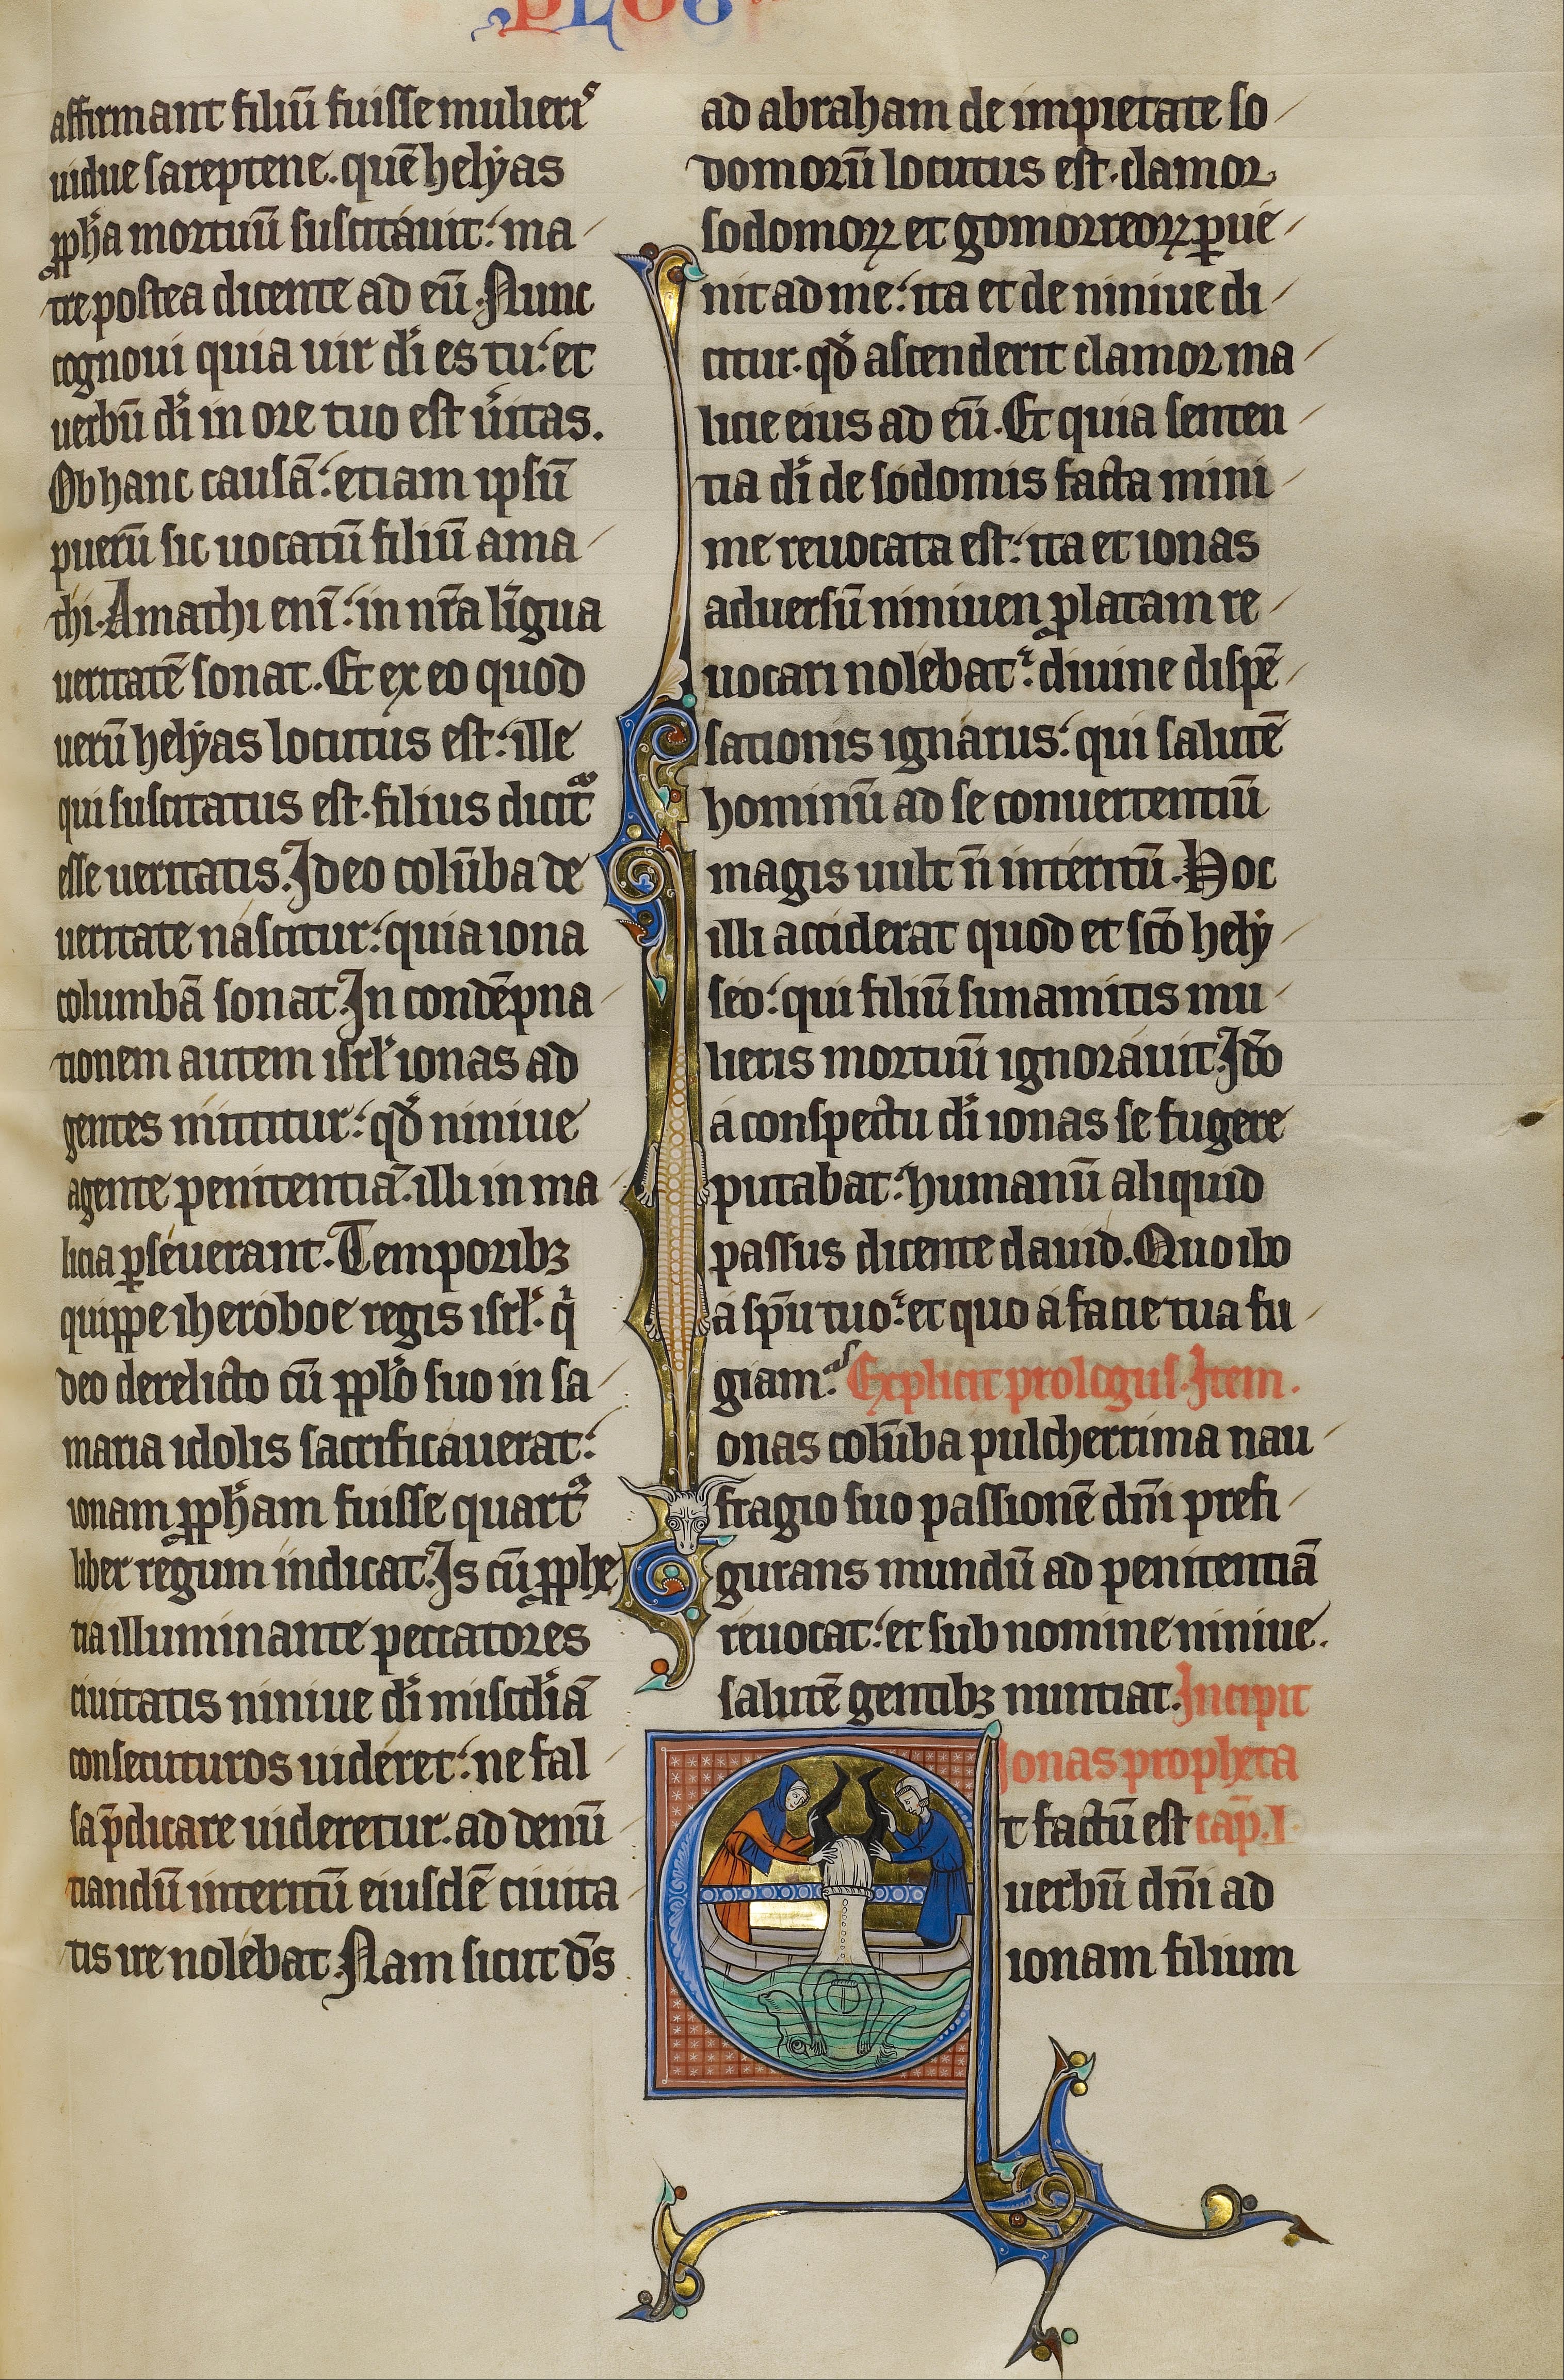 PLOG
affirmant filiū fuisse mulieris
uidue sareptene. quē helyas
ꝓph̄a mortuū suscitauit: ma
tre postea dicente ad eū. Nunc
cognoui quia uir dī es tu: et
uerbū dī in ore tuo est ūitas.
Ob hanc causā: etiam ipsū
puerū sic uocatū filiū ama
thi. Amathi enī: in nr̄a lingua
ueritatē sonat. Et ex eo quod
uerū helyas locutus est: ille
qui suscitatus est. filius dicit᷑
esse ueritatis. Ideo colūba de
ueritate nascitur: quia iona
columbā sonat. In condēpna
tionem autem isrl̄ ionas ad
gentes mittitur: qd̄ niniue
agente penitentiā. illi in ma
licia ꝑseuerant. Temporibꝫ
quippe iheroboe regis isrl̄. q̄
deo derelicto cū ppl̄o suo in sa
maria idolis sacrificauerat:
ionam ꝓph̄am fuisse quartꝰ
liber regum indicat. Is cū ꝓphe
tia illuminante peccatores
ciuitatis niniue dī miscd̄iā
consecuturos uideret: ne fal
sa p̄dicare uideretur. ad denū
tiandū interitū eiusdē ciuita
tis ire nolebat. Nam sicut dn̄s
ad abraham de impietate so
domorū locutus est. clamor
sodomorꝝ et gomorreorꝝ ꝑue
nit ad me: ita et de niniue di
citur. qd̄ ascenderit clamor ma
licie eius ad eū. Et quia senten
tia dī de sodomis facta mini
me reuocata est: ita et ionas
aduersū niniuen ꝓlatam re
uocari nolebat: diuine dispē
sationis ignarus: qui salutē
hominū ad se conuertentiū
magis uult n̄ interitū. Hoc
illi acciderat quod et sc̄o hely
seo: qui filiū sunamitis mu
lieris mortuū ignorauit. Id̄o
a conspectu dī ionas se fugere
putabat: humanū aliquid
passus dicente dauid. Quo ibo
a sp̄u tuo: et quo a facie tua fu
giam. Explicit prologus. Item.
onas colūba pulcherrima nau
fragio suo passionē dn̄i prefi
gurans mundū ad penitentiā
reuocat: et sub nomine niniue.
salutē gentibꝫ nuntiat. Incipit
Ionas propheta
t factū est cap̄. I.
uerbū dn̄i ad
ionam filium